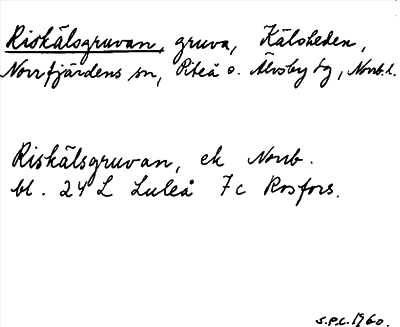 Riskälsgruvan, gruva, Kälsheden,
Norrfjärdens sn, Piteå o. Älvsby tg, Norrb. l.
Riskälsgruvan, ek Norrb.
bl. 24 L Luleå 7c Rosfors.
S.P.C. 1960.